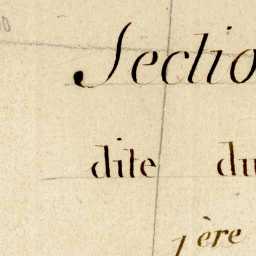 Sectio
dite du
1ère